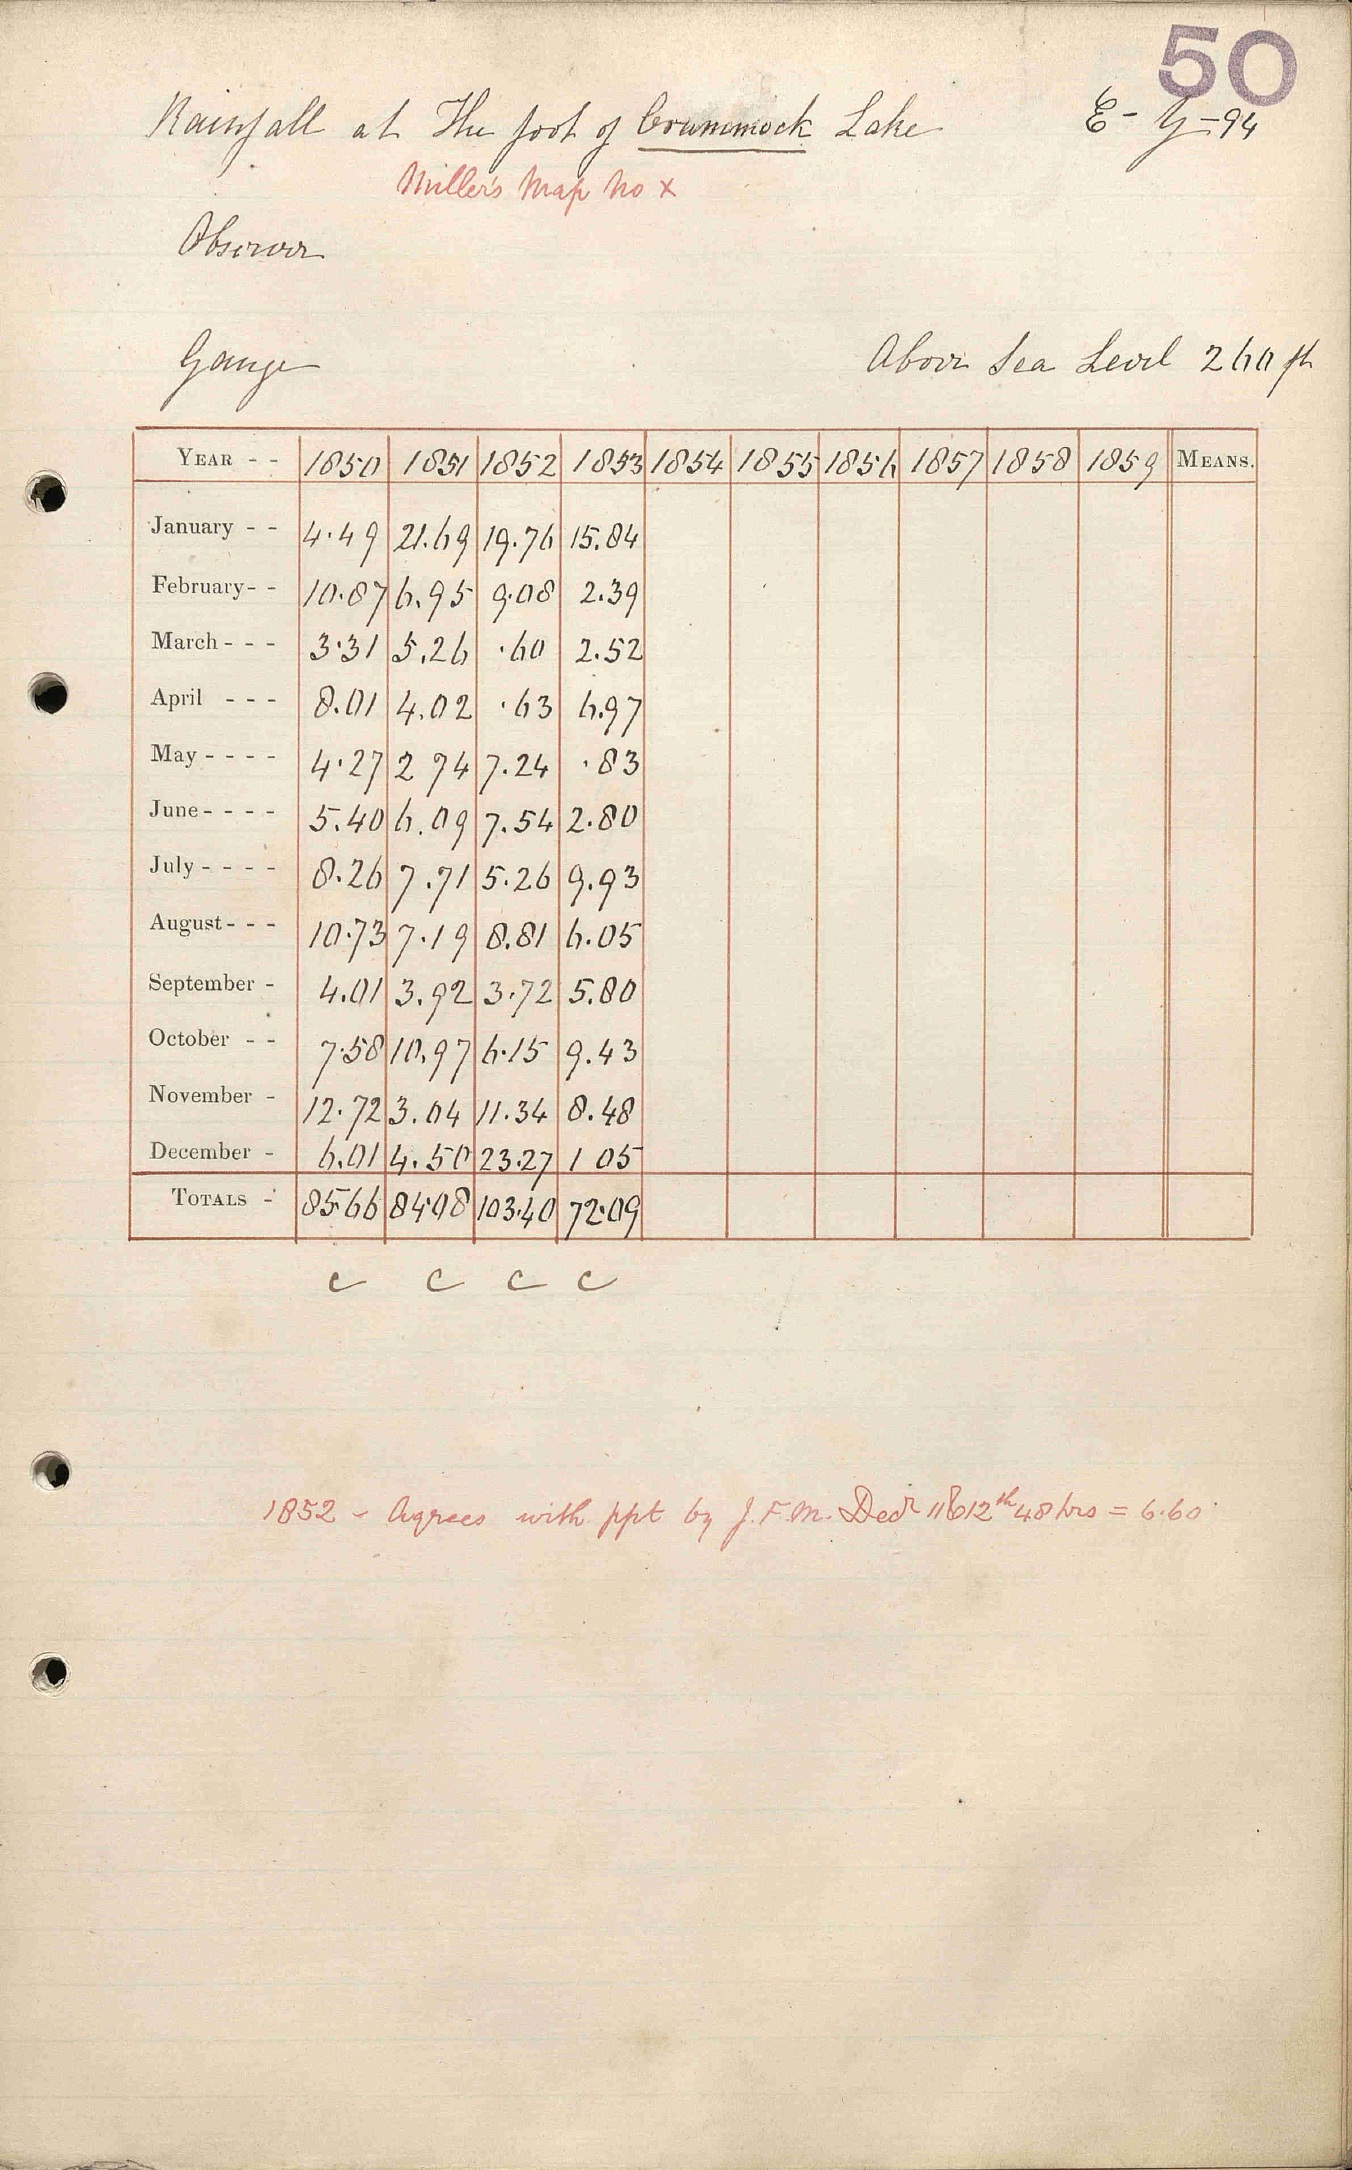 50
Rainfall at The foot of Crummock Lake E - G - 94
Miller's Map No x
Observer
Gauge Above Sea Level 260 ft
YEAR - - 1850 1851 1852 1853 1854 1855 1856 1857 1858 1859 MEANS.
January - - 4.49 21.69 19.76 15.84
February - - 10.87 6.95 9.08 2.39
March - - - 3.31 5.26 .60 2.52
April - - - 8.01 4.02 .63 6.97
May - - - - 4.27 2 74 7.24 .83
June - - - - 5.40 6.09 7.54 2.80
July - - - - 8.26 7.71 5.26 9.93
August - - - 10.73 7.19 8.81 6.05
September - 4.01 3.92 3.72 5.80
October - - 7.58 10.97 6.15 9.43
November - 12.72 3.04 11.34 8.48
December - 6.01 4.50 23.27 1 05
TOTALS - 85.66 84.08 103.40 72.09
c c c c
1852 - Agrees with ppt by J.F.M. Decr 11 & 12th 48 hrs = 6.60